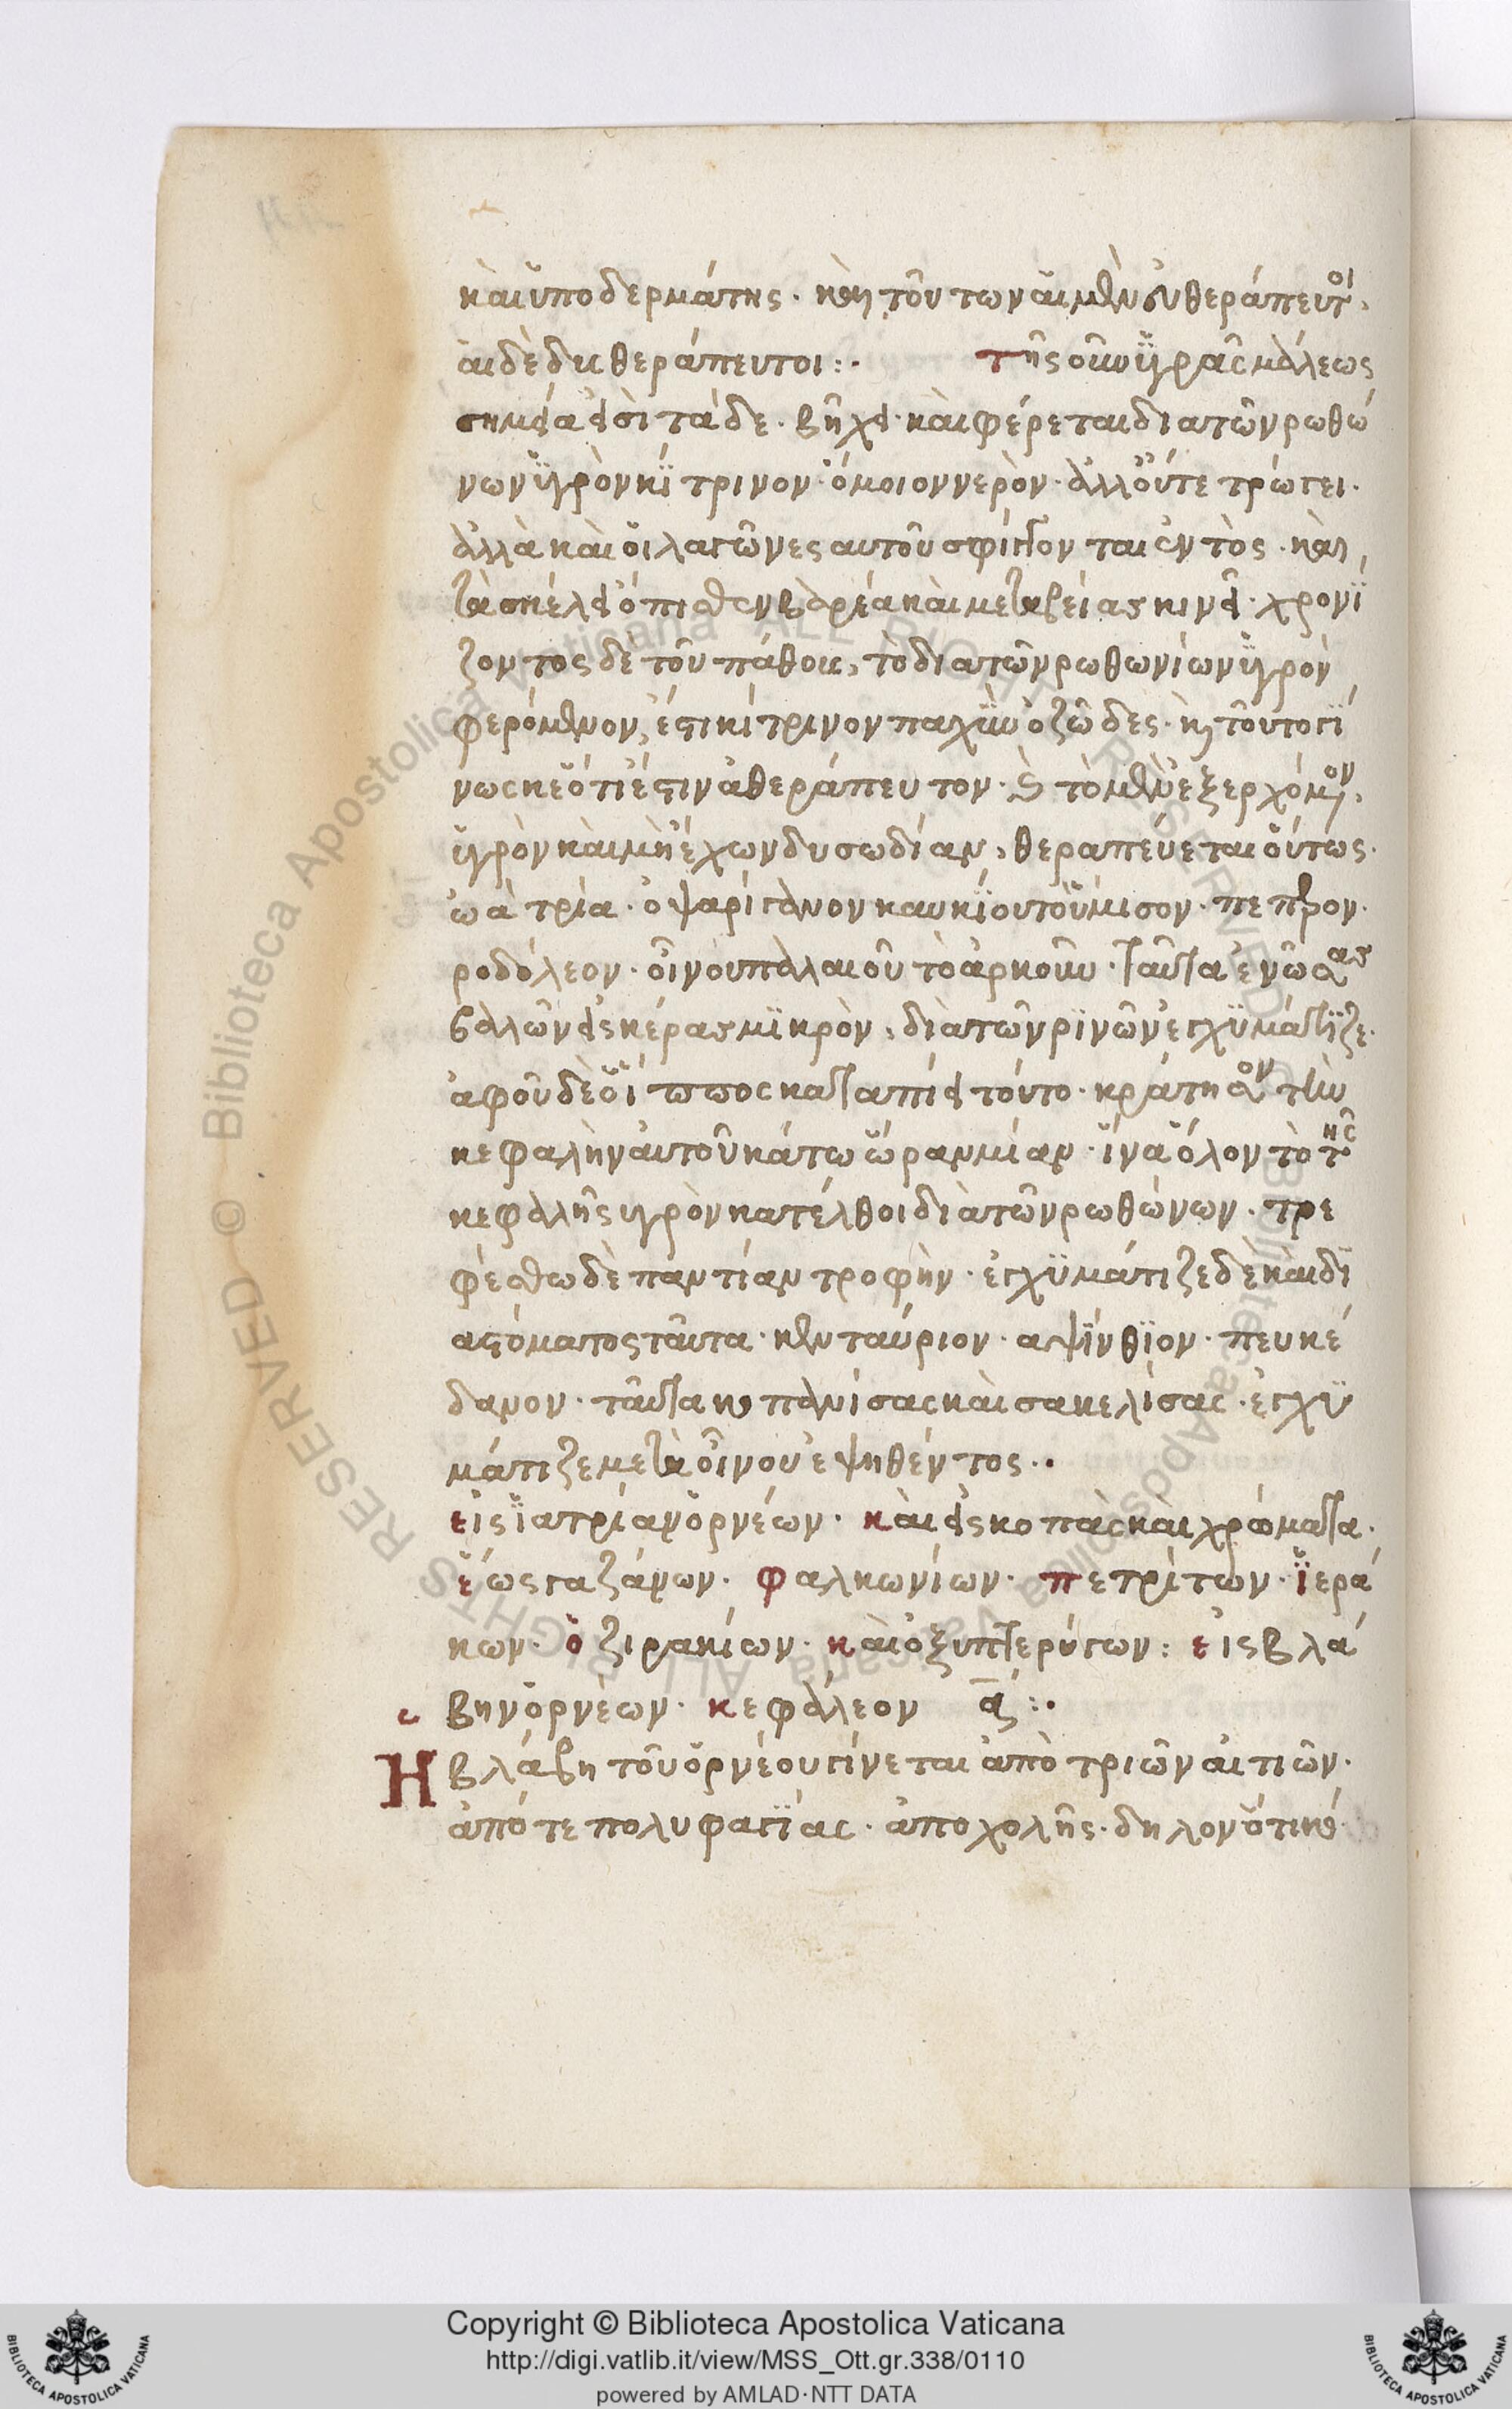 καὶ ὑποδερμάτης · καὶ τούτων αἱ μὲν εὐθεράπευτοι,
αἱ δὲ δυσθεράπευτοι :· τῆς οὖν ὑγρᾶς μάλεως
σημεῖα εἰσὶ τάδε · βήχει · καὶ φέρεται διατῶν ρωθώ
νων ὑγρὸν κίτρινον · ὅμοιον νερὸν · ἀλλ' οὔτε τρώγει ·
ἀλλὰ καὶ οἱ λαγῶνες αυτοῦ σφίγγονται ἐντὸς · καὶ
τὰ σκέλει ὄπισθεν βαρέα καὶ μεταβείας κινεῖ · χρονί
ζοντος δὲ τοῦ πάθους, τὸ διατῶν ρωθωνίων ὑγρὸν
φερόμενον, ἐστι κίτρινον παχὺν ὀζῶδες · καὶ τοῦτο γί
νωσκε ὅτι ἐστιν ἀθεράπευτον · τὸ μὲν ἐξερχόμενον,
ὑγρὸν καὶ μὴ ἔχων δυσωδίαν, θεραπεύεται οὕτως ·
ὠὰ τρία · ὀψαρίγανον καυκίου τοὔμισον · πέπερον ·
ροδόλεον · οἴνου παλαιοῦ τὸ ἀρκοῦν · ταῦτα ἑνώσας
βαλὼν εἰς κέρας μικρὸν, διὰ τῶν ρινῶν ἐγχυμάτιζε ·
ἀφοῦ δὲ ὁ ἵππος καταπίει τοῦτο · κράτησον τὴν
κεφαλὴν ἀυτοῦ κάτω ὥραν μίαν · ἵνα ὅλον τὸ τῆς
κεφαλῆς υγρὸν κατέλθοι διὰ τῶν ρωθώνων · τρε
φέσθω δὲ παντίαν τροφὴν · ἐγχυμάτιζε δὲ καὶ δι
αστόματος ταῦτα · κενταύριον · αψίνθιον · πευκέ
δανον · ταῦτα κοπανίσας καὶ σακελίσας · ἐγχυ
μάτιζε μετὰ οἴνου ἑψηθέντος ··
εἰς ἰατρίαν ὀρνέων · καὶ εἰς κοπὰς καὶ χρώματα ·
ἕως γαζάνων · φαλκωνίων · πετρίτων · ἱερά
κων · ὀζιρακίων · καὶ ὀξυπτερύγων : εἰς βλά
βην ὀρνέων · κεφάλεον α΄ :·
Ἡ βλάβη τοῦ ὀρνέου γίνεται ἀπὸ τριῶν αἰτιῶν ·
ἀπό τε πολυφαγίας · ἀπο χολῆς · δηλονότι
Copyright © Biblioteca Apostolica Vaticana
http://digi.vatlib.it/view/MSS_Ott.gr.338/0110
powered by AMLAD·NTT DATA